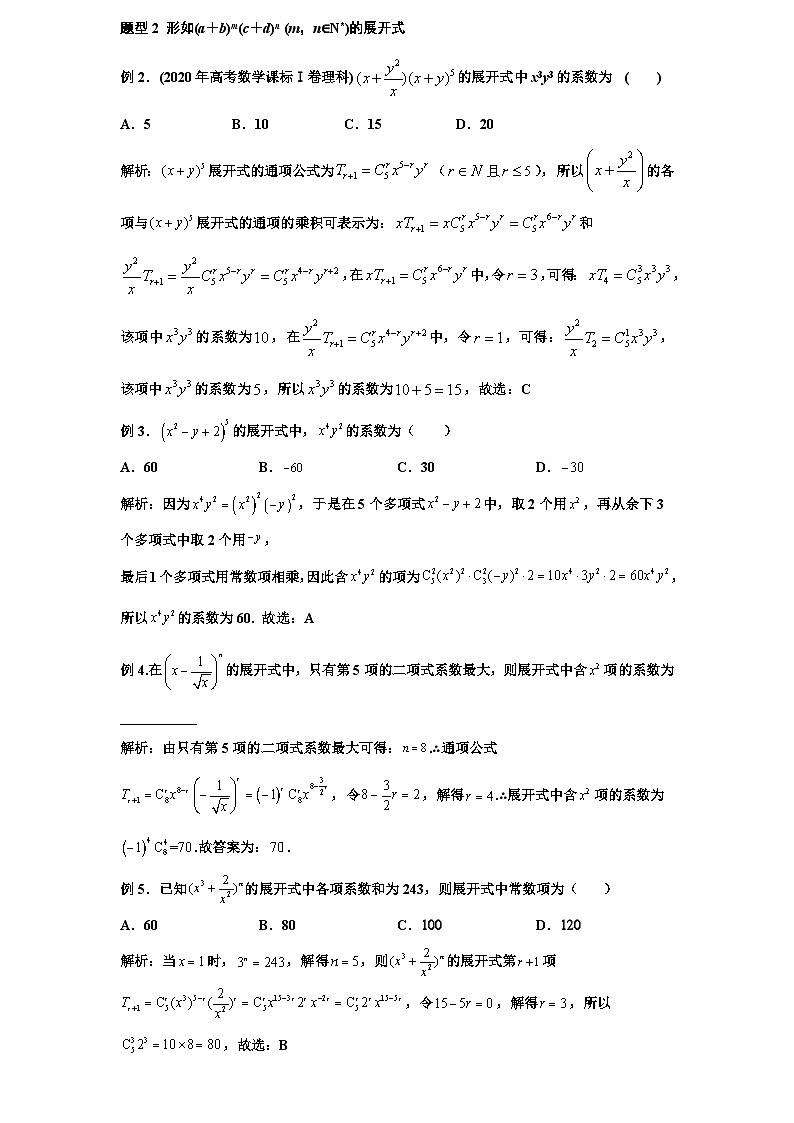 题型2 形如(a+b)ᵐ(c+d)ⁿ (m, n∈N*)的展开式
例2. (2020年高考数学课标Ⅰ卷理科) $(x+\frac{y^2}{x})(x+y)^5$ 的展开式中x³y³的系数为 ( )
A. 5 B. 10 C. 15 D. 20
解析: $(x+y)^5$ 展开式的通项公式为 $T_{r+1}=C_5^r x^{5-r}y^r$ ($r\in N$ 且 $r\le 5$), 所以 $\left(x+\frac{y^2}{x}\right)$ 的各
项与 $(x+y)^5$ 展开式的通项的乘积可表示为: $xT_{r+1}=xC_5^r x^{5-r}y^r=C_5^r x^{6-r}y^r$ 和
$\frac{y^2}{x}T_{r+1}=\frac{y^2}{x}C_5^r x^{5-r}y^r=C_5^r x^{4-r}y^{r+2}$ ,在 $xT_{r+1}=C_5^r x^{6-r}y^r$ 中,令 $r=3$ ,可得: $xT_4=C_5^3 x^3y^3$ ,
该项中 $x^3y^3$ 的系数为 $10$ , 在 $\frac{y^2}{x}T_{r+1}=C_5^r x^{4-r}y^{r+2}$ 中, 令 $r=1$ , 可得: $\frac{y^2}{x}T_2=C_5^1 x^3y^3$ ,
该项中 $x^3y^3$ 的系数为 $5$ , 所以 $x^3y^3$ 的系数为 $10+5=15$ , 故选: C
例3. $(x^2-y+2)^5$ 的展开式中, $x^4y^2$ 的系数为( )
A. 60 B. $-60$ C. 30 D. $-30$
解析: 因为 $x^4y^2=(x^2)^2(-y)^2$ , 于是在5个多项式 $x^2-y+2$ 中, 取2个用 $x^2$ , 再从余下3
个多项式中取2个用 $-y$ ,
最后1个多项式用常数项相乘,因此含 $x^4y^2$ 的项为 $C_5^2(x^2)^2\cdot C_3^2(-y)^2\cdot 2=10x^4\cdot 3y^2\cdot 2=60x^4y^2$ ,
所以 $x^4y^2$ 的系数为60. 故选: A
例4.在 $\left(x-\frac{1}{\sqrt{x}}\right)^n$ 的展开式中, 只有第5项的二项式系数最大, 则展开式中含 $x^2$ 项的系数为
___________
解析: 由只有第5项的二项式系数最大可得: $n=8$ .∴通项公式
$T_{r+1}=C_8^r x^{8-r}\left(-\frac{1}{\sqrt{x}}\right)^r=(-1)^r C_8^r x^{8-\frac{3}{2}r}$ , 令 $8-\frac{3}{2}r=2$ , 解得 $r=4$ .∴展开式中含 $x^2$ 项的系数为
$(-1)^4 C_8^4=70$ .故答案为: $70$ .
例5. 已知 $(x^3+\frac{2}{x^2})^n$ 的展开式中各项系数和为243, 则展开式中常数项为( )
A. 60 B. 80 C. 100 D. 120
解析: 当 $x=1$ 时, $3^n=243$ , 解得 $n=5$ , 则 $(x^3+\frac{2}{x^2})^n$ 的展开式第 $r+1$ 项
$T_{r+1}=C_5^r(x^3)^{5-r}(\frac{2}{x^2})^r=C_5^r x^{15-3r}2^r x^{-2r}=C_5^r 2^r x^{15-5r}$ , 令 $15-5r=0$ , 解得 $r=3$ , 所以
$C_5^3 2^3=10\times 8=80$ , 故选: B